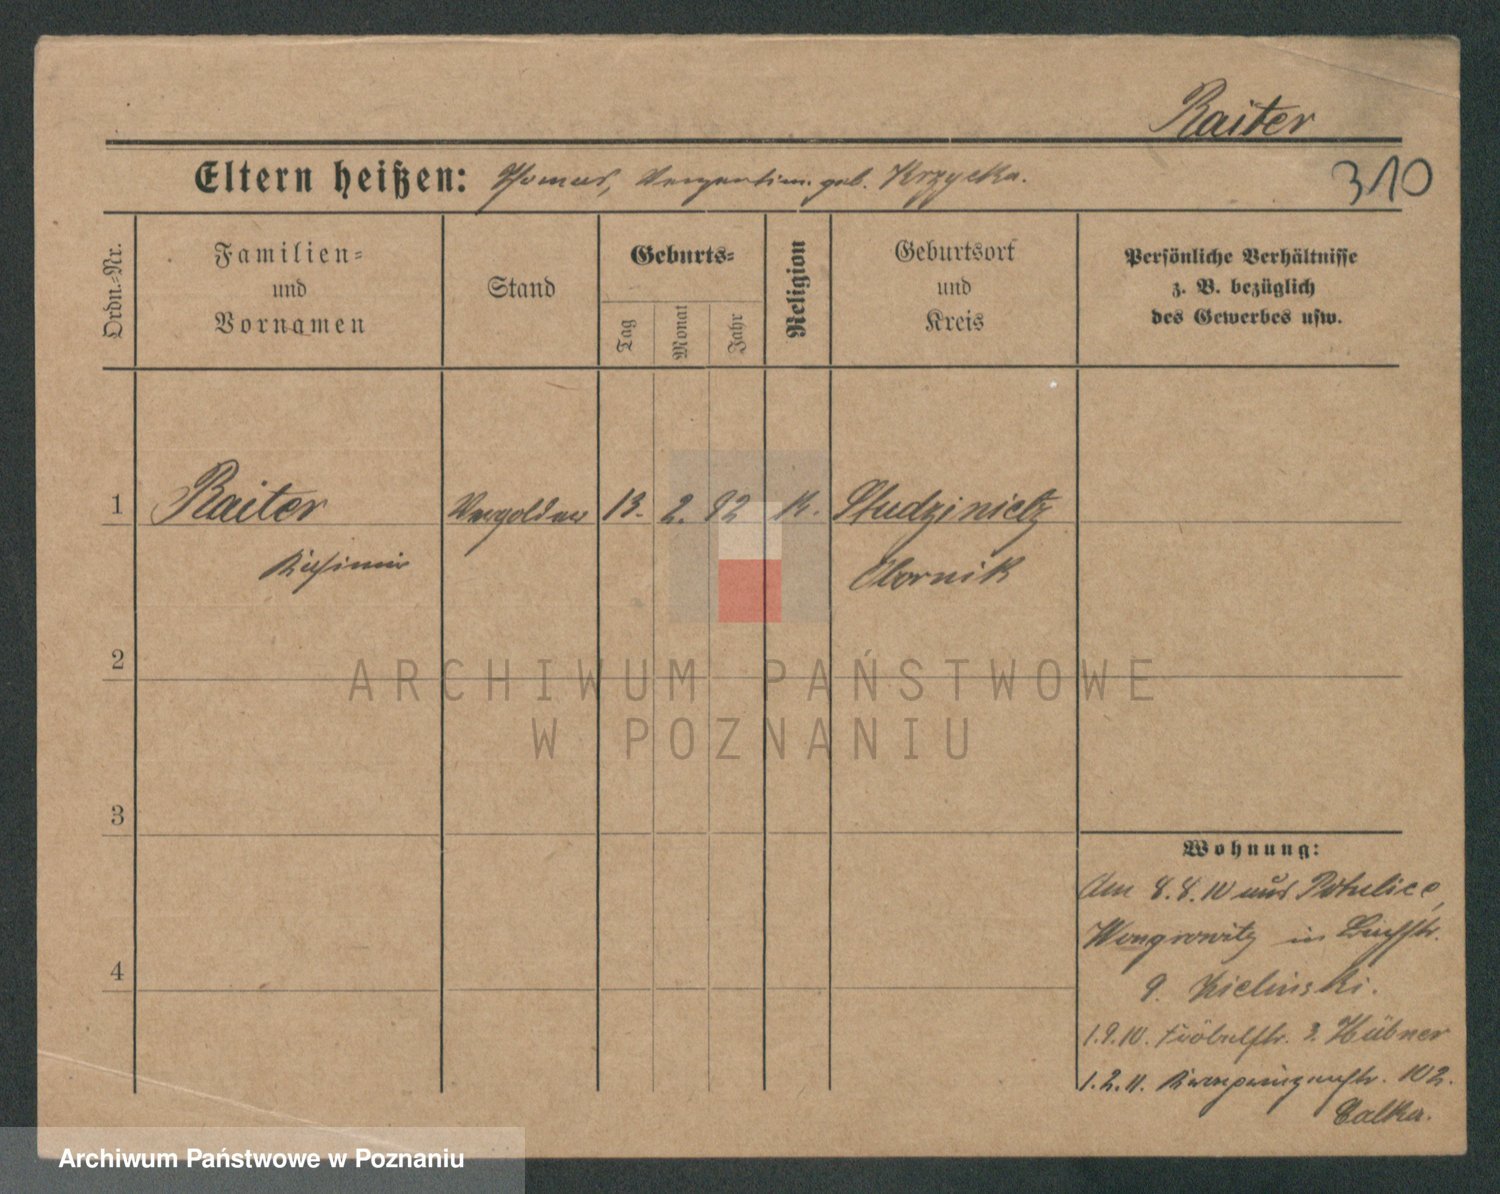 Raiter
Eltern heißen: Thomas, geb. Krzycka.
310
Ordn.-Nr.
Familien-
und
Vornamen
Stand
Geburts-
Tag
Monat
Jahr
Religion
Geburtsort
und
Kreis
Persönliche Verhältnisse
z. B. bezüglich
des Gewerbes usw.
1
Raiter
Vergolder
13.
2.
92
K.
Studzinietz
Kasimir
Obornik
2
3
4
Wohnung:
Am 8.8.10 aus Potulice,
Wongrowitz in
9. Zielinski.
1.9.10. Fröbelstr. 3. Hübner
1.2.11. Kronprinzenstr. 102.
Calka.
ARCHIWUM PAŃSTWOWE
W POZNANIU
Archiwum Państwowe w Poznaniu